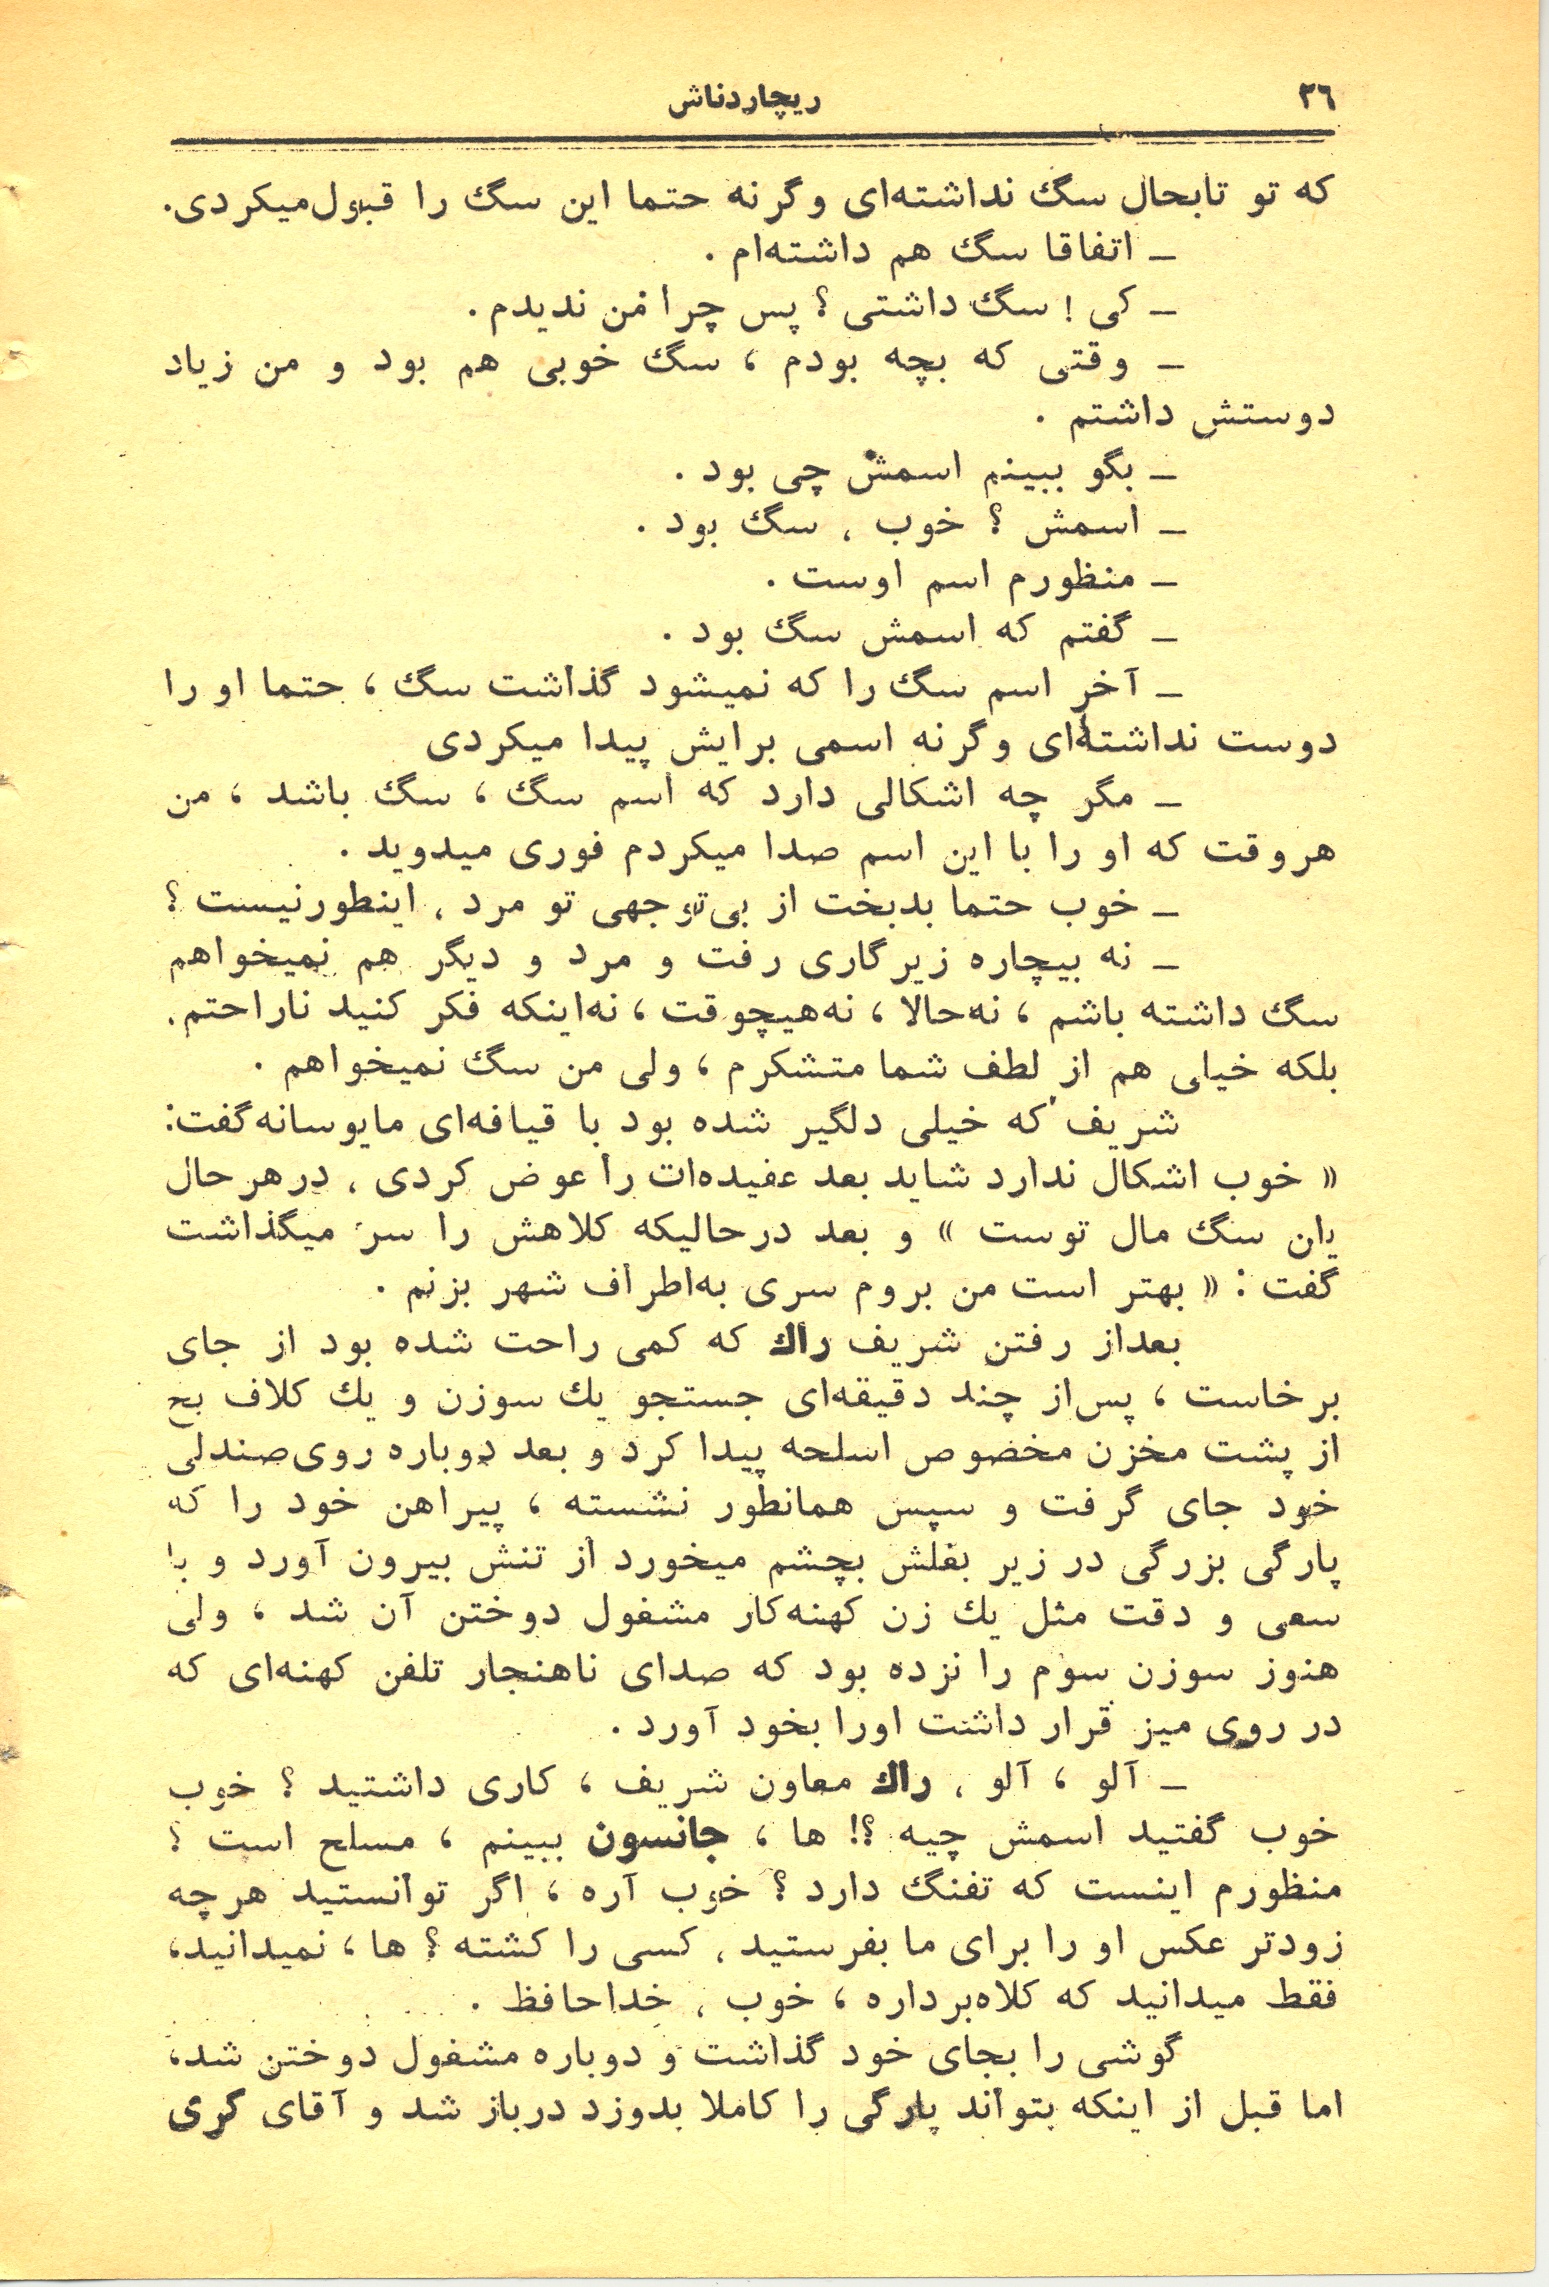 ۳٦ ریچاردناش
که تو تابحال سگ نداشته‌ای وگرنه حتما این سگ را قبول‌میکردی.
ـ اتفاقا سگ هم داشته‌ام .
ـ کی ! سگ داشتی ؟ پس چرا من ندیدم .
ـ وقتی که بچه بودم ، سگ خوبی هم بود و من زیاد
دوستش داشتم .
ـ بگو ببینم اسمش چی بود .
ـ اسمش ؟ خوب ، سگ بود .
ـ منظورم اسم اوست .
ـ گفتم که اسمش سگ بود .
ـ آخر اسم سگ را که نمیشود گذاشت سگ ، حتما او را
دوست نداشته‌ای وگرنه اسمی برایش پیدا میکردی
ـ مگر چه اشکالی دارد که اسم سگ ، سگ باشد ، من
هروقت که او را با این اسم صدا میکردم فوری میدوید .
ـ خوب حتما بدبخت از بی‌توجهی تو مرد ، اینطورنیست ؟
ـ نه بیچاره زیرگاری رفت و مرد و دیگر هم نمیخواهم
سگ داشته باشم ، نه‌حالا ، نه‌هیچوقت ، نه‌اینکه فکر کنید ناراحتم.
بلکه خیلی هم از لطف شما متشکرم ، ولی من سگ نمیخواهم .
شریف که خیلی دلگیر شده بود با قیافه‌ای مایوسانه‌گفت:
« خوب اشکال ندارد شاید بعد عفیده‌ات را عوض کردی ، درهرحال
یان سگ مال توست » و بعد درحالیکه کلاهش را سر میگذاشت
گفت : « بهتر است من بروم سری به‌اطراف شهر بزنم .
بعداز رفتن شریف راك که کمی راحت شده بود از جای
برخاست ، پس‌از چند دقیقه‌ای جستجو یك سوزن و یك کلاف بخ
از پشت مخزن مخصوص اسلحه پیدا کرد و بعد دوباره روی‌صندلی
خود جای گرفت و سپس همانطور نشسته ، پیراهن خود را که
پارگی بزرگی در زیر بغلش بچشم میخورد از تنش بیرون آورد و با
سعی و دقت مثل یك زن کهنه‌کار مشغول دوختن آن شد ، ولی
هنوز سوزن سوم را نزده بود که صدای ناهنجار تلفن کهنه‌ای که
در روی میز قرار داشت اورا بخود آورد .
ـ آلو ، آلو ، راك معاون شریف ، کاری داشتید ؟ خوب
خوب گفتید اسمش چیه ؟! ها ، جانسون ببینم ، مسلح است ؟
منظورم اینست که تفنگ دارد ؟ خوب آره ، اگر توانستید هرچه
زودتر عکس او را برای ما بفرستید ، کسی را کشته ؟ ها ، نمیدانید،
فقط میدانید که کلاه‌برداره ، خوب ، خداحافظ .
گوشی را بجای خود گذاشت و دوباره مشغول دوختن شد،
اما قبل از اینکه بتواند پارگی را کاملا بدوزد درباز شد و آقای گری